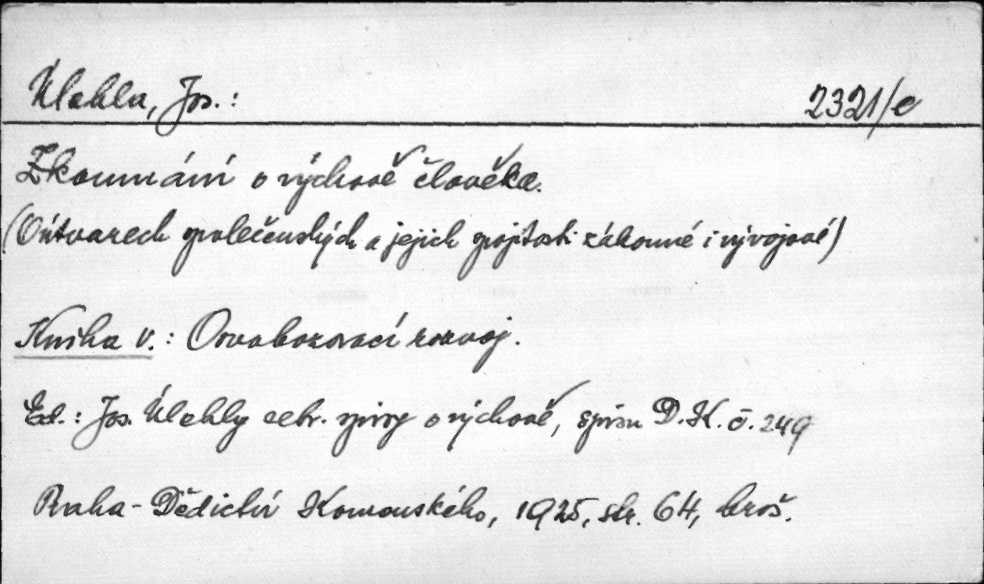 Úlehla, Jos.: 2321/e
Zkoumání o výchově člověka.
(O útvarech společenských a jejich spojitosti zákonné i vývojové)
Kniha V.: Osvobozovací rozvoj.
Ed.: Jos. Úlehly sebr. spisy o výchově, spisu D.K. č. 249
Praha - Dědictví Komenského, 1925, str. 64, brož.